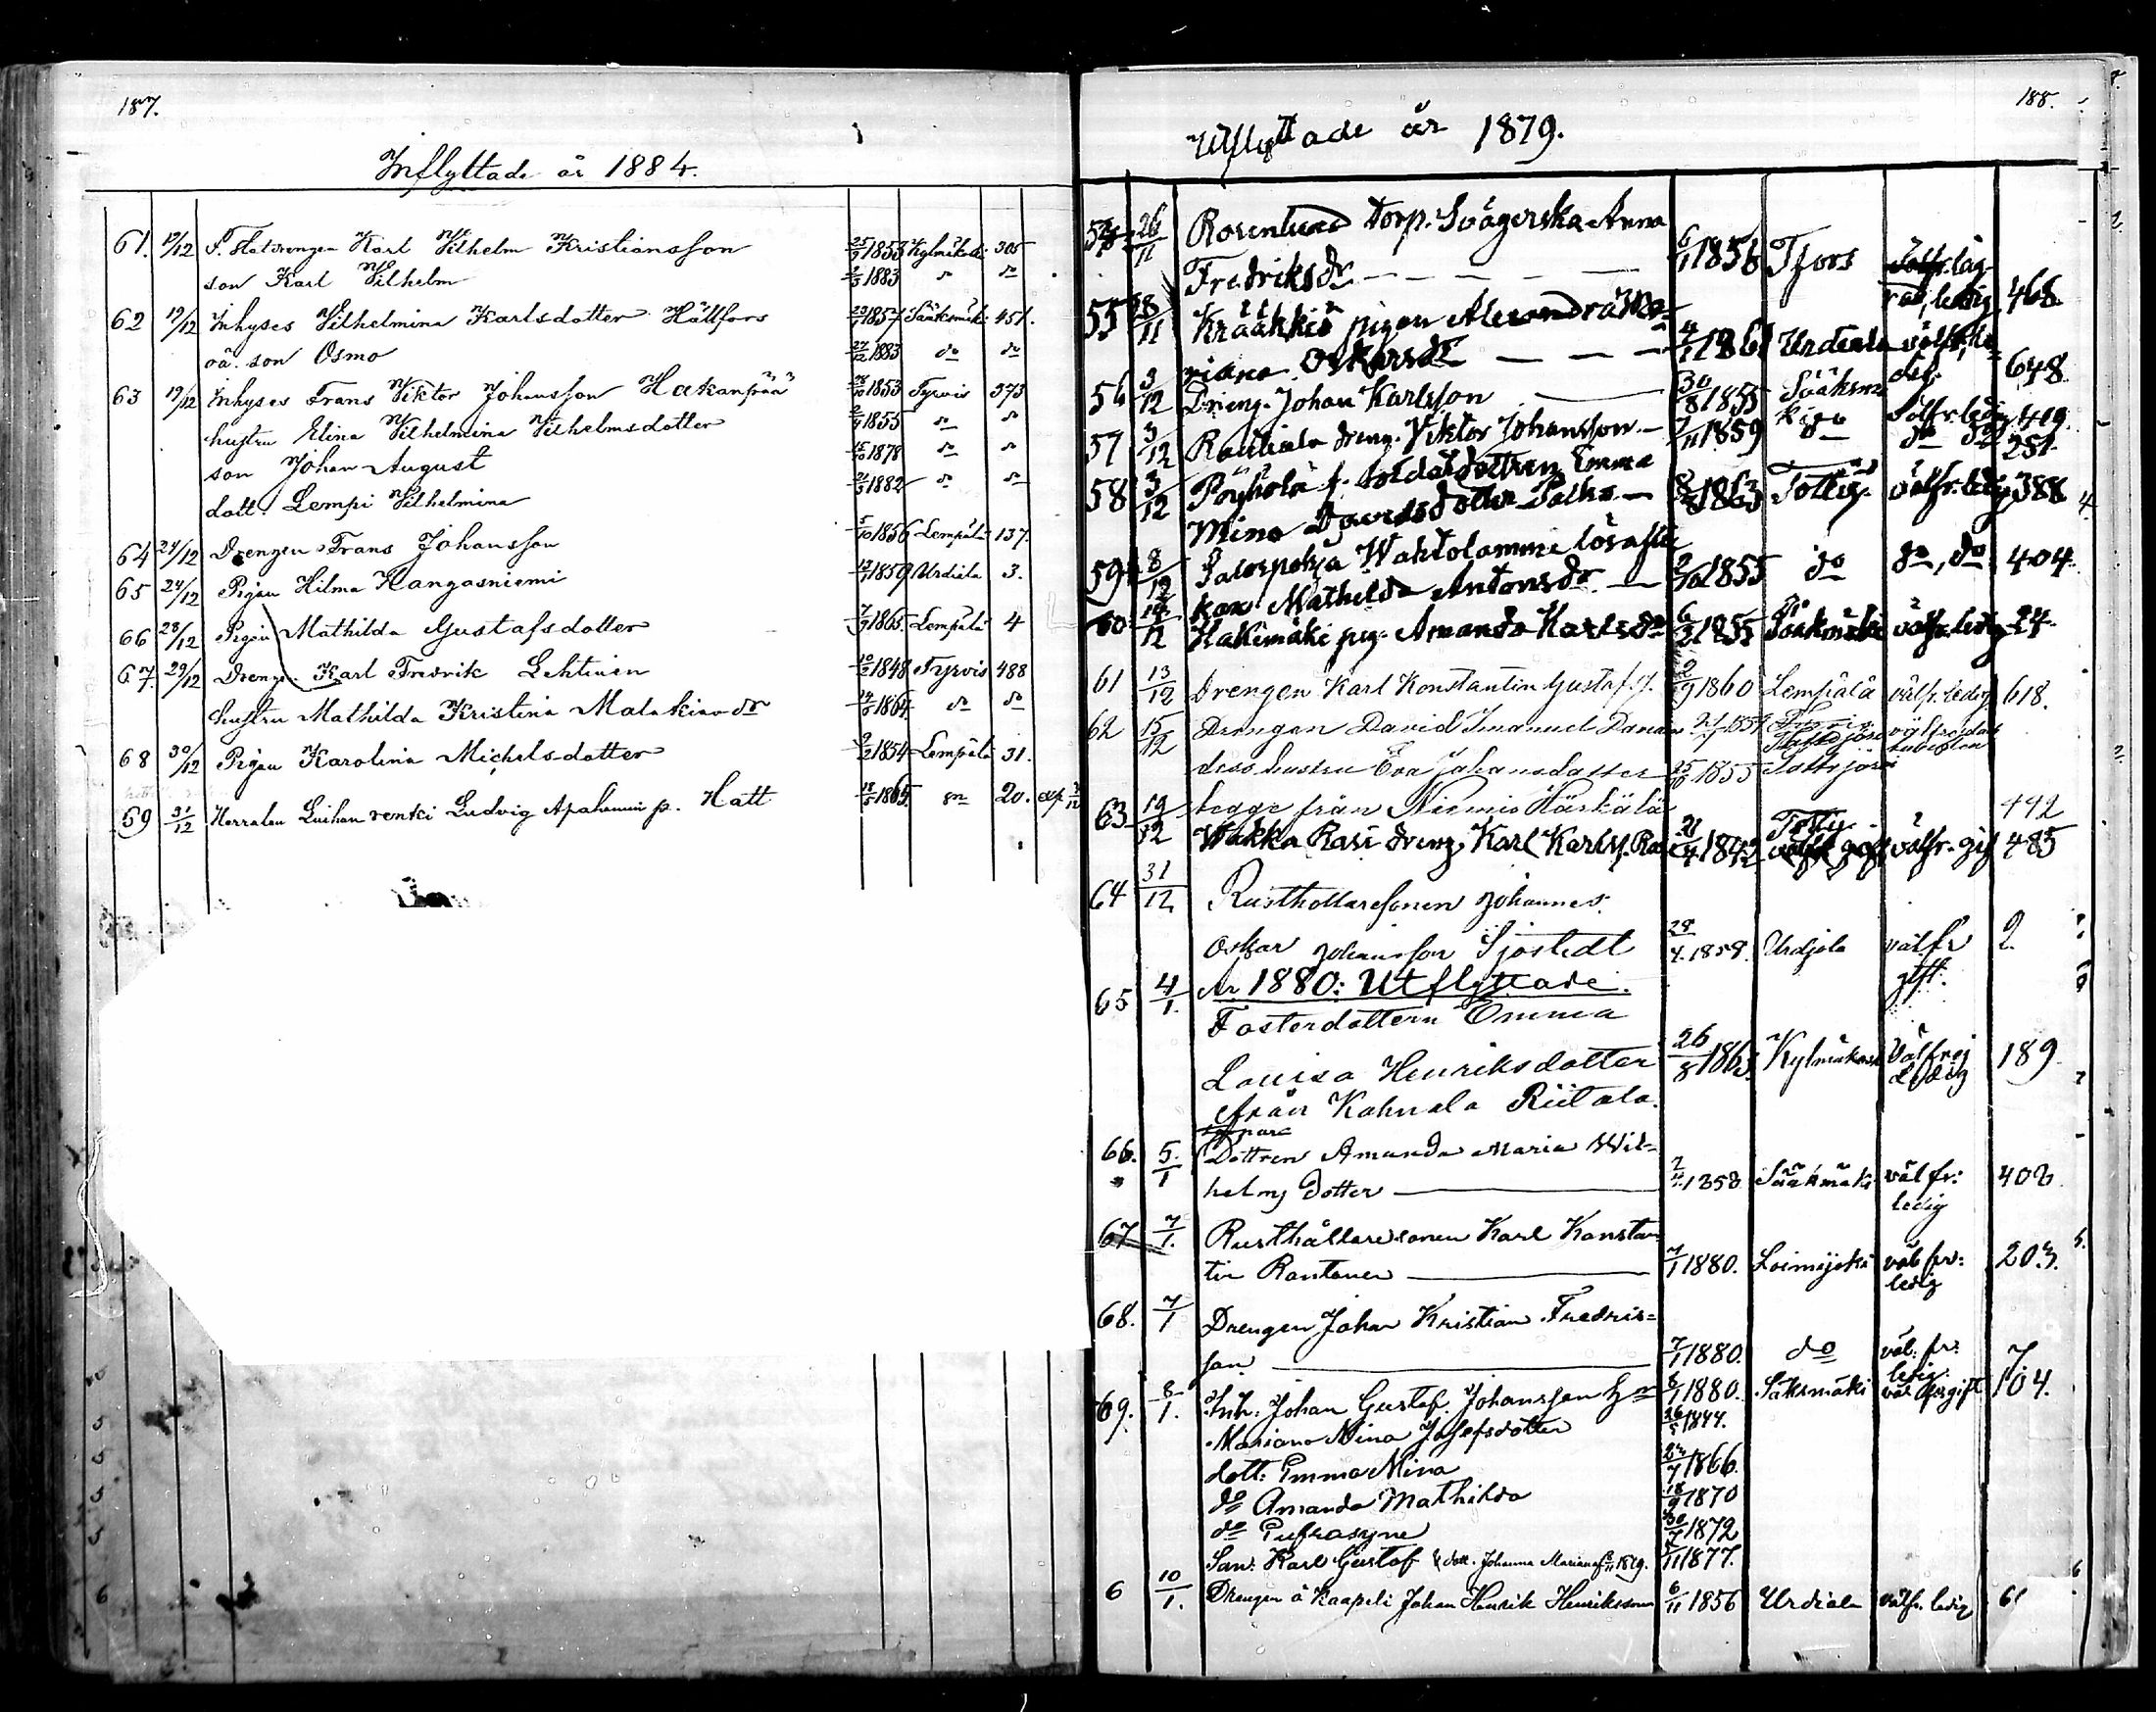 187.
Inflyttade år 1884.
61. 19/12 F. Statdrengen Karl Vilhelm Kristiansson 25/9 1853 Kylmäkoski 305
son Karl Vilhelm 1883 do do
62 19/12 Inhyses Vilhelmina Karlsdotter Hällfors 1857 Sääksmäki 451.
oä. son Osmo 27/12 1883 do do
63 19/12 Inhyses Frans Viktor Johansson Hakanpää 1853 Tyrvis 373
hustru Elina Vilhelmina Vilhelmsdotter 1855 do do
son Johan August 1878 do do
dott. Lempi Vilhelmina 1882 do do
64 24/12 Drengen Frans Johansson 5/10 1856 Lempälä 137.
65 24/12 Pigan Hilma Kangasniemi 1859 Urdiala 3.
66 28/12 Pigan Mathilda Gustafsdotter 1865. Lempälä 4
67. 29/12 Dreng. Karl Fredrik Lehtinen 1848 Tyrvis 488
hustru Mathilda Kristina Malakiasdr 1864 do do
68 30/12 Pigan Karolina Michelsdotter 9/2 1854 Lempälä 31.
69 31/12 Herralan Luihan renki Ludvig Apahannu p. Hatt 1865 20.
188.
Utflyttade år 1879.
26/11 Rosenlund Torp. Svägerska Anna
Fredriksdr — — — — 6/1 1856 Tfors ledig, 468.
55 28/11 Kräákkiö pigan Alexandra
Oskarsdr — — — 1861 Urdiala 648.
56 3/12 Dreng. Johan Karlsson — 30/8 1855 Sääksmä
ki välfr. ledig 419.
57 3/12 Rautiala dreng. Viktor Johansson — 1859 do do do 251.
58 3/12 Pöyhölä f. soldatdottren Emma
Mina Davidsdotter — 1863 Tottij. välfr. ledig 388
59 8/12 Wahtolammi lösaste
kon Mathilda Antonsdr — 2/10 1855 do do, do 404.
60 12 Hakemäki pig. Amanda Karlsdr 1855 Sääksmäki välfr. ledig 24.
61 13/12 Drengen Karl Konstantin Gustafs. 2/9 1860 Lempälä välfr. ledig 618.
62 15/12 Drengen David Imanuel
dess hustru Eva Johansdotter 1855 Tottijärvi
begge från Niemis Häskälä 442
63 19/12 Wakka Rasi dreng. Karl Karls. 21/4 1842 Tottij. välfr. gif 485
64 31/12 Rusthollaresonen Johannes
Oskar Johansson Sjöstedt 28/4. 1858. Urdjala välfr 2.
gift.
År 1880: Utflyttade.
65 4/1. Fosterdottern Emma
Lovisa Henriksdotter 26/8 1863. Kylmäkoski Välfrejd ledig 189.
från Kahnala Riitala.
66. 5./1 Dottren Amanda Maria Wil=
helms dotter — 1858 Sääksmäki välfr: ledig 402.
67 7/1. Rusthållaresonen Karl Konstan
tin Rantanen — 7/1 1880. Loimijoki väl fr: ledig 203.
68. 7/1 Drengen Johan Kristian Fredriks=
son — 7/1 1880. do väl: fr: ledig. 7
69. 8/1. Inh: Johan Gustaf. Johansson 8/1 1880. Säksmäki 104.
Mariana Mina Josefsdotter 26/5 1844.
dott: Emma Mina 23/7 1866.
do Amanda Mathilda 18/9 1870
do Eufrosyne 30/7 1872
Son. Karl Gustaf & dott. Johanna Mariana 1879. 11 1877.
6 10/1. Drengen å Kaapeli Johan Henrik Henriksson 6/11 1856 Urdiala välfr. ledig 61